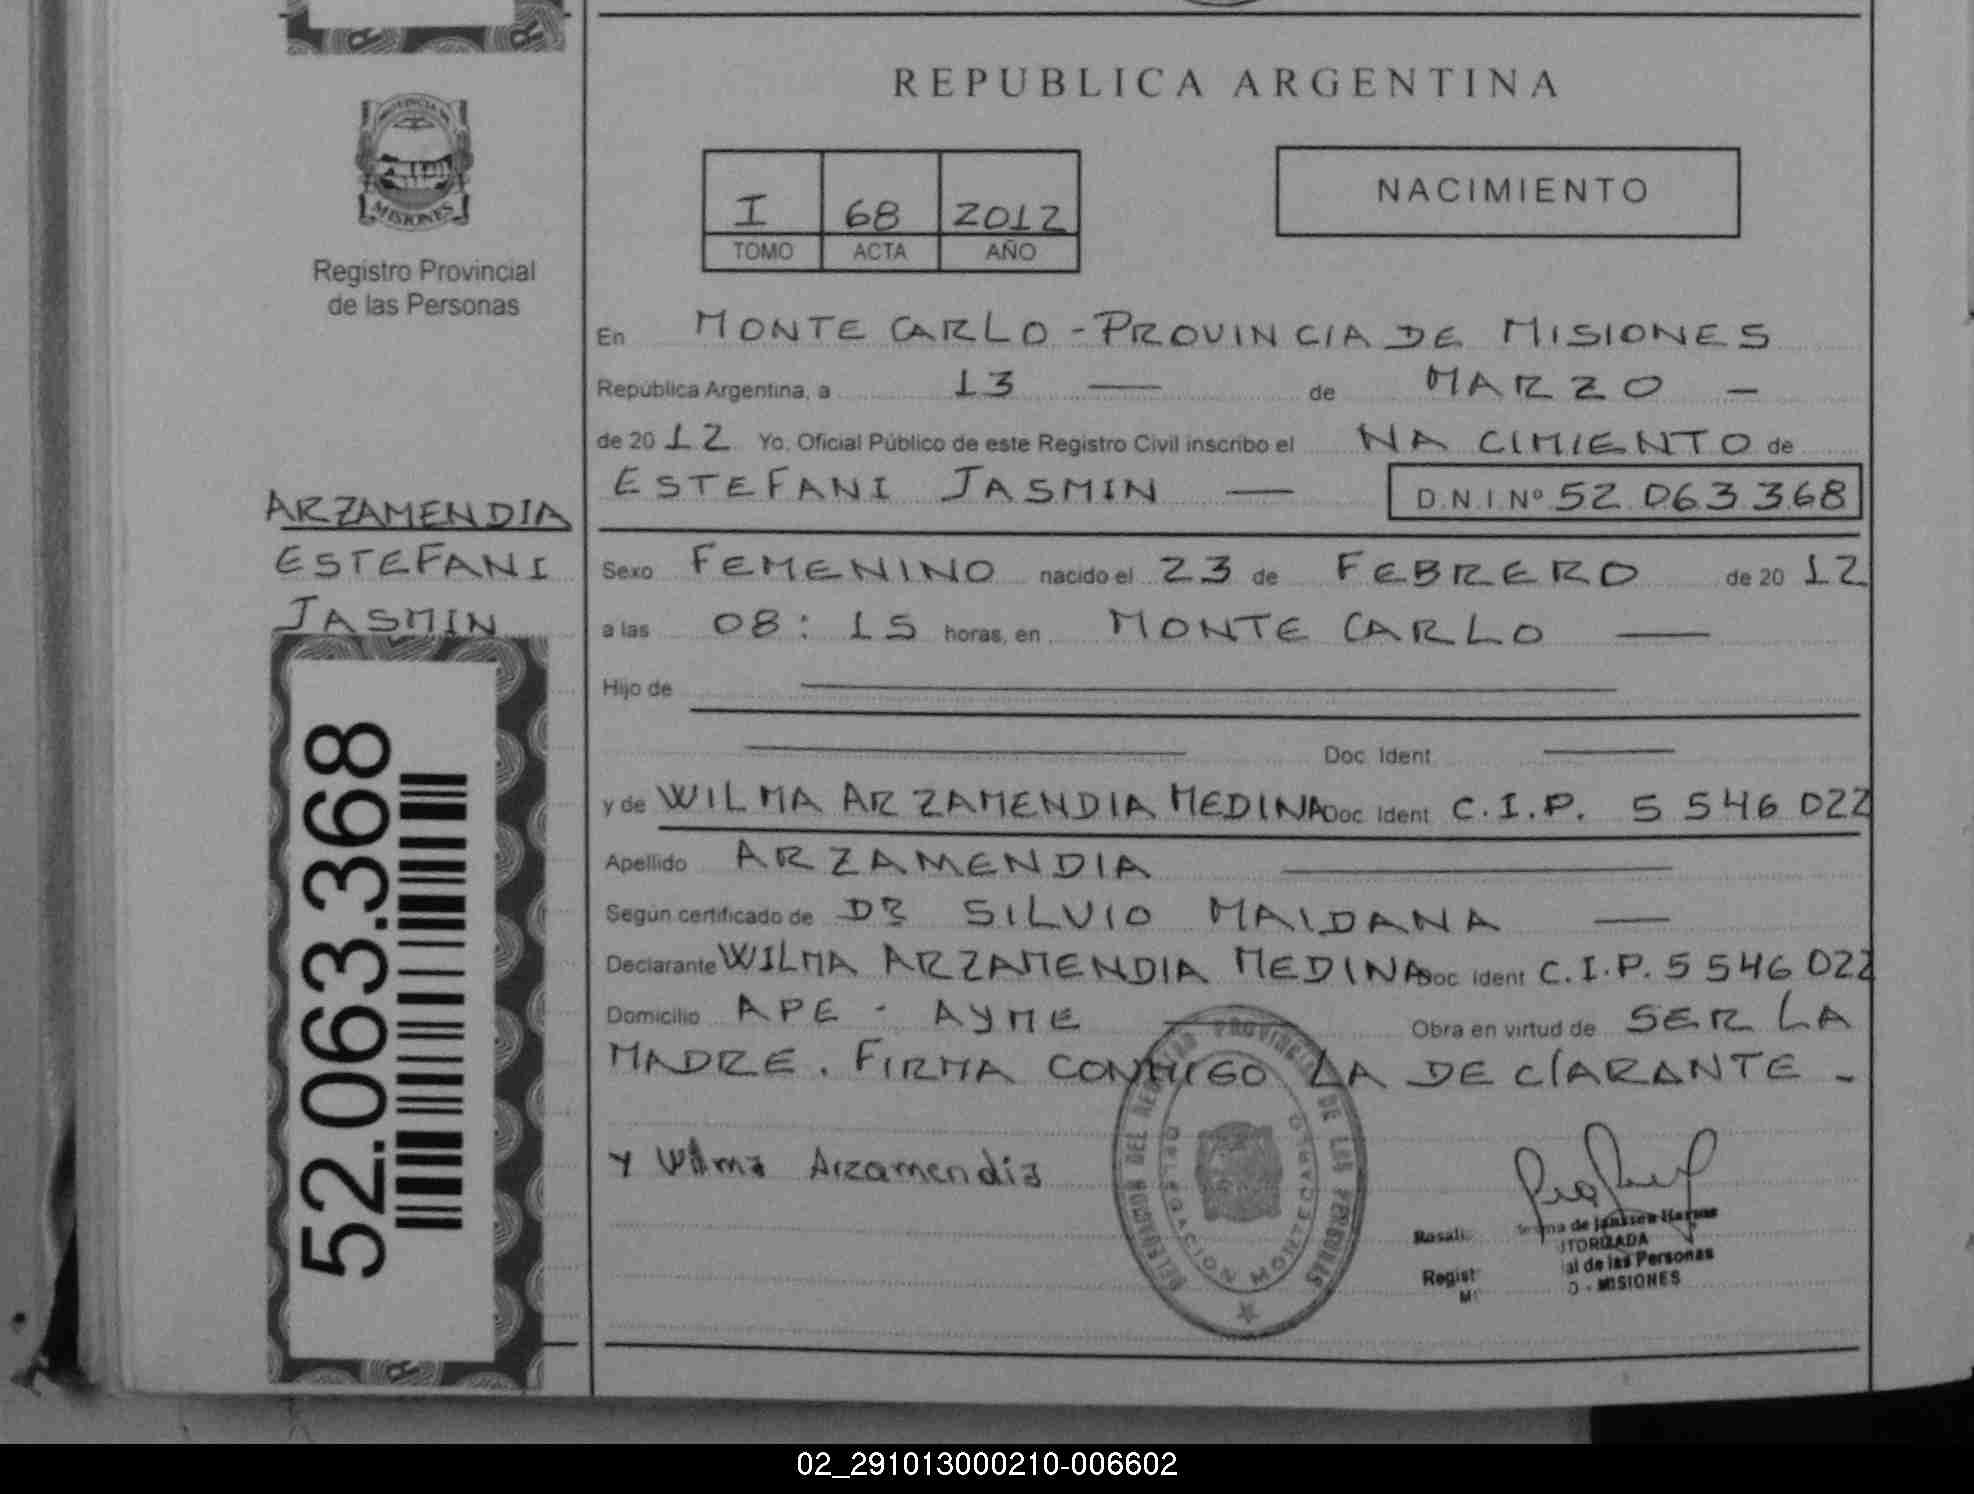 REPUBLICA ARGENTINA
PROVINCIA DE
MISIONES
Registro Provincial
de las Personas
I 68 2012
TOMO ACTA AÑO
NACIMIENTO
En MONTECARLO - PROVINCIA DE MISIONES
República Argentina, a 13 — de MARZO —
de 20 12 Yo, Oficial Público de este Registro Civil inscribo el NACIMIENTO de
ESTEFANI JASMIN — D.N.I.Nº 52.063.368
ARZAMENDIA
ESTEFANI
JASMIN
Sexo FEMENINO nacido el 23 de FEBRERO de 20 12
a las 08:15 horas, en MONTE CARLO —
Hijo de —
— Doc. Ident. —
y de WILMA ARZAMENDIA MEDINA Doc. Ident C.I.P. 5546022
Apellido ARZAMENDIA —
Según certificado de DR SILVIO MAIDANA —
Declarante WILMA ARZAMENDIA MEDINA Doc. Ident C.I.P. 5546022
Domicilio APE - AYME — Obra en virtud de SER LA
MADRE. FIRMA CONMIGO LA DEClARANTE -
y Wilma Arzamendia
52.063.368
DEL REGISTRO PROVINCIAL DE LAS PERSONAS
DELEGACION MONTECARLO
Rosali de Janssen Harms
TORIZADA
Regist al de las Personas
M O - MISIONES
02_291013000210-006602